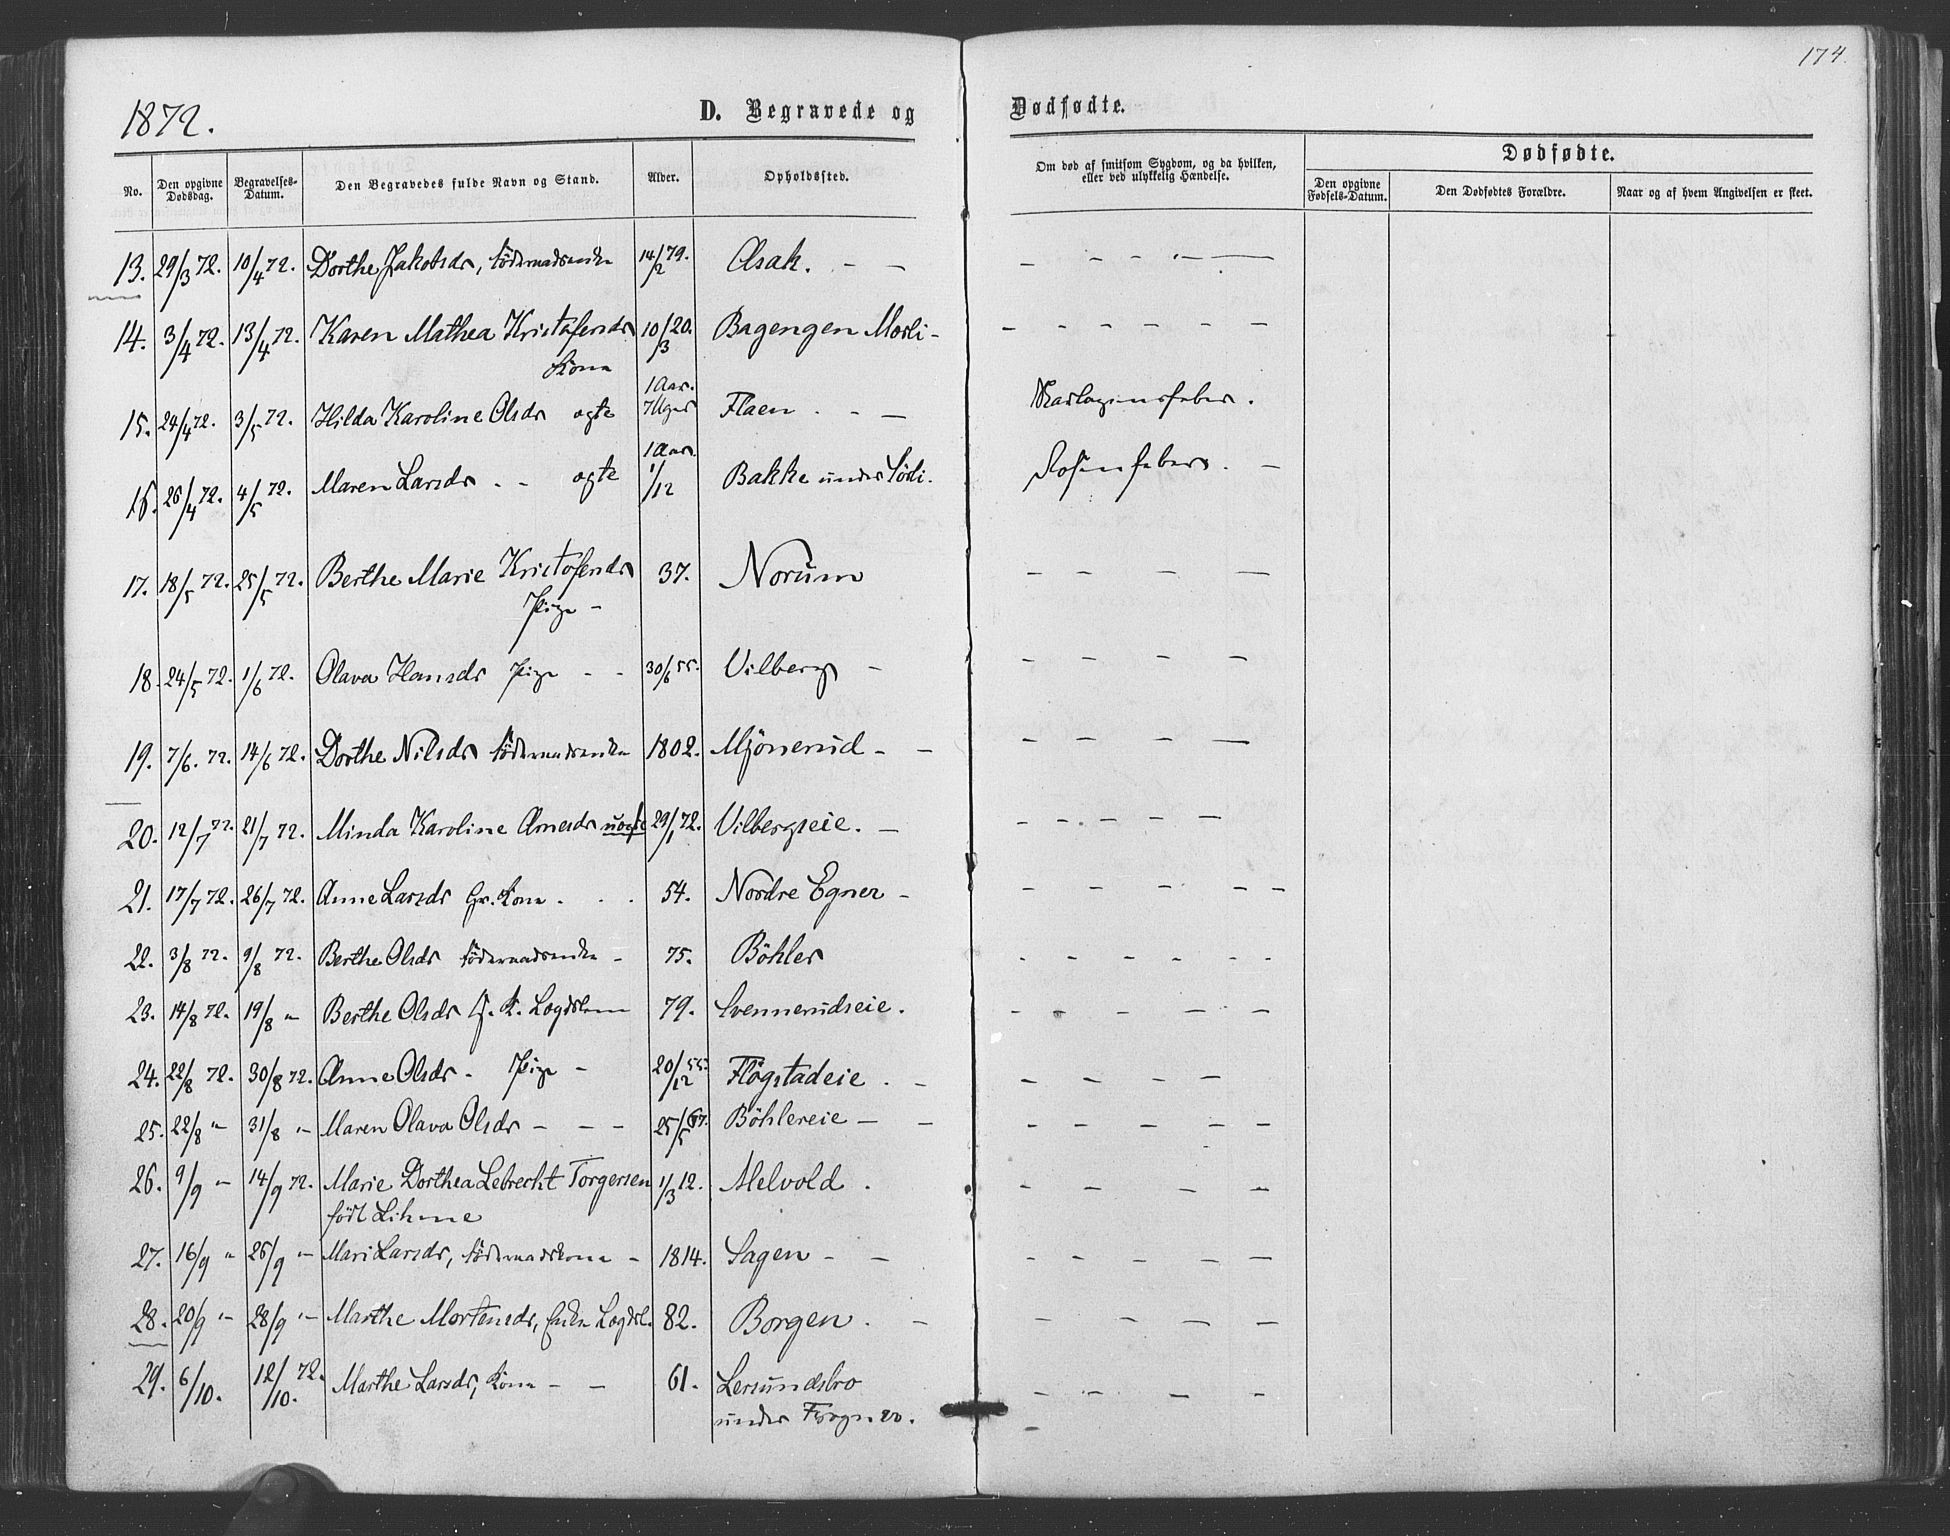 174.
1872.
D. Begravede og Dødfødte.
No. Den opgivne Dødsdag. Begravelses-Datum. Den Begravedes fulde Navn og Stand. Alder. Opholdssted. Om død af smitsom Sygdom, og da hvilken, eller ved ulykkelig Hændelse. Dødfødte.
Den opgivne Fødsels-Datum. Den Dødfødtes Forældre. Naar og af hvem Angivelsen er skeet.
13. 29/3 72. 10/4 72. Dorthe Jakobsdr, Föderaadsenke 14/2 79. Asak. - -
14. 3/4 72. 13/4 72. Karen Mathea Kristofersdr 10/3 20. Bagengen Morli -
Kone
15. 24/4 72. 3/5 72. Hilda Karoline Olsdr ægte 1 Aar. 7 Uger Flaen - -
16. 26/4 72. 4/5 72. Maren Larsdr - - ægte 1 Aar. 1/12 Bakke under Sörli.
17. 18/5 72. 25/5 72. Berthe Marie Kristofersdr 37. Norum
Pige -
18. 24/5 72. 1/6 72. Olava Hansdr Pige - - 30/6 55. Vilberg -
19. 7/6. 72. 14/6 72. Dorthe Nilsdr Föderaadsenke 1802. Mjönerud - -
20. 12/7 72. 21/7 72. Minda Karoline Arnesdr uægte 29/1 72. Vilbergseie. -
21. 17/7 72. 26/7 72. Anne Larsdr Gr. Kone . . . 54. Nordre Egner -
22. 3/8 72. 9/8 72. Berthe Olsdr Föderaadsenke - 75. Böhler
23. 14/8 72. 19/8 " Berthe Olsdr G. K. Lægdslem 79. Svennerudseie.
24. 22/8 72. 30/8 72. Anne Olsdr. Pige - 20/12 55. Flögstadeie . -
25. 22/8 " 31/8 " Maren Olava Olsdr - - - 25/5 67. Böhlereie - -
26. 9/9 " 14/9 72. Marie Dorthea Lebrecht Torgersen 1/3 12. Melvold .
född Lihme
27. 16/9 " 26/9 " Mari Larsdr, Föderaadskone - 1814. Sagen - -
28. 20/9 " 28/9 " Marthe Mortensdr, Enke Lægdsl. 82. Borgen . -
29. 6/10. 12/10. 72. Marthe Larsdr, Kone - - 61. Lersundsbro
under Frogner.